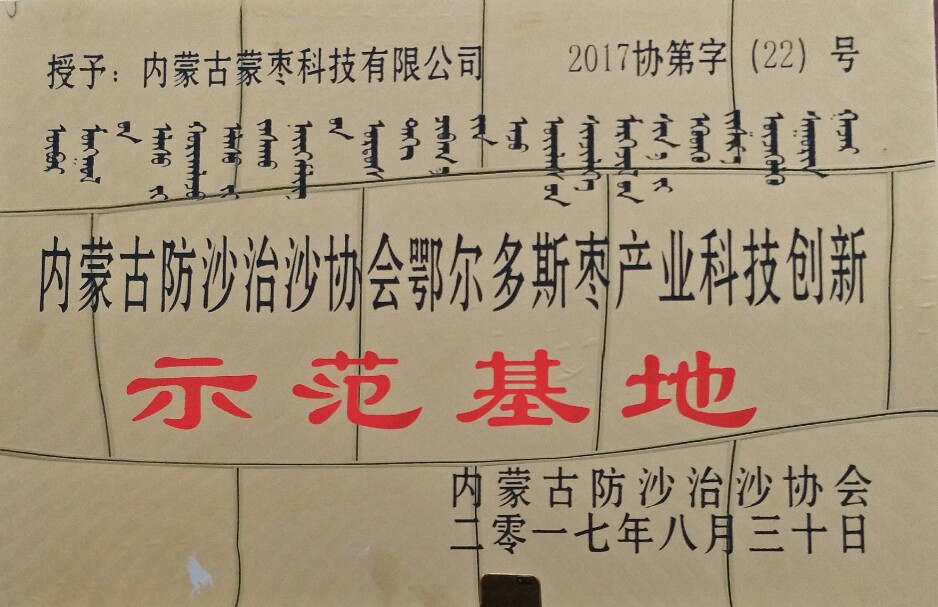 授予：内蒙古蒙枣科技有限公司 2017协第字（22）号
内蒙古防沙治沙协会鄂尔多斯枣产业科技创新
示范基地
内蒙古防沙治沙协会
二零一七年八月三十日